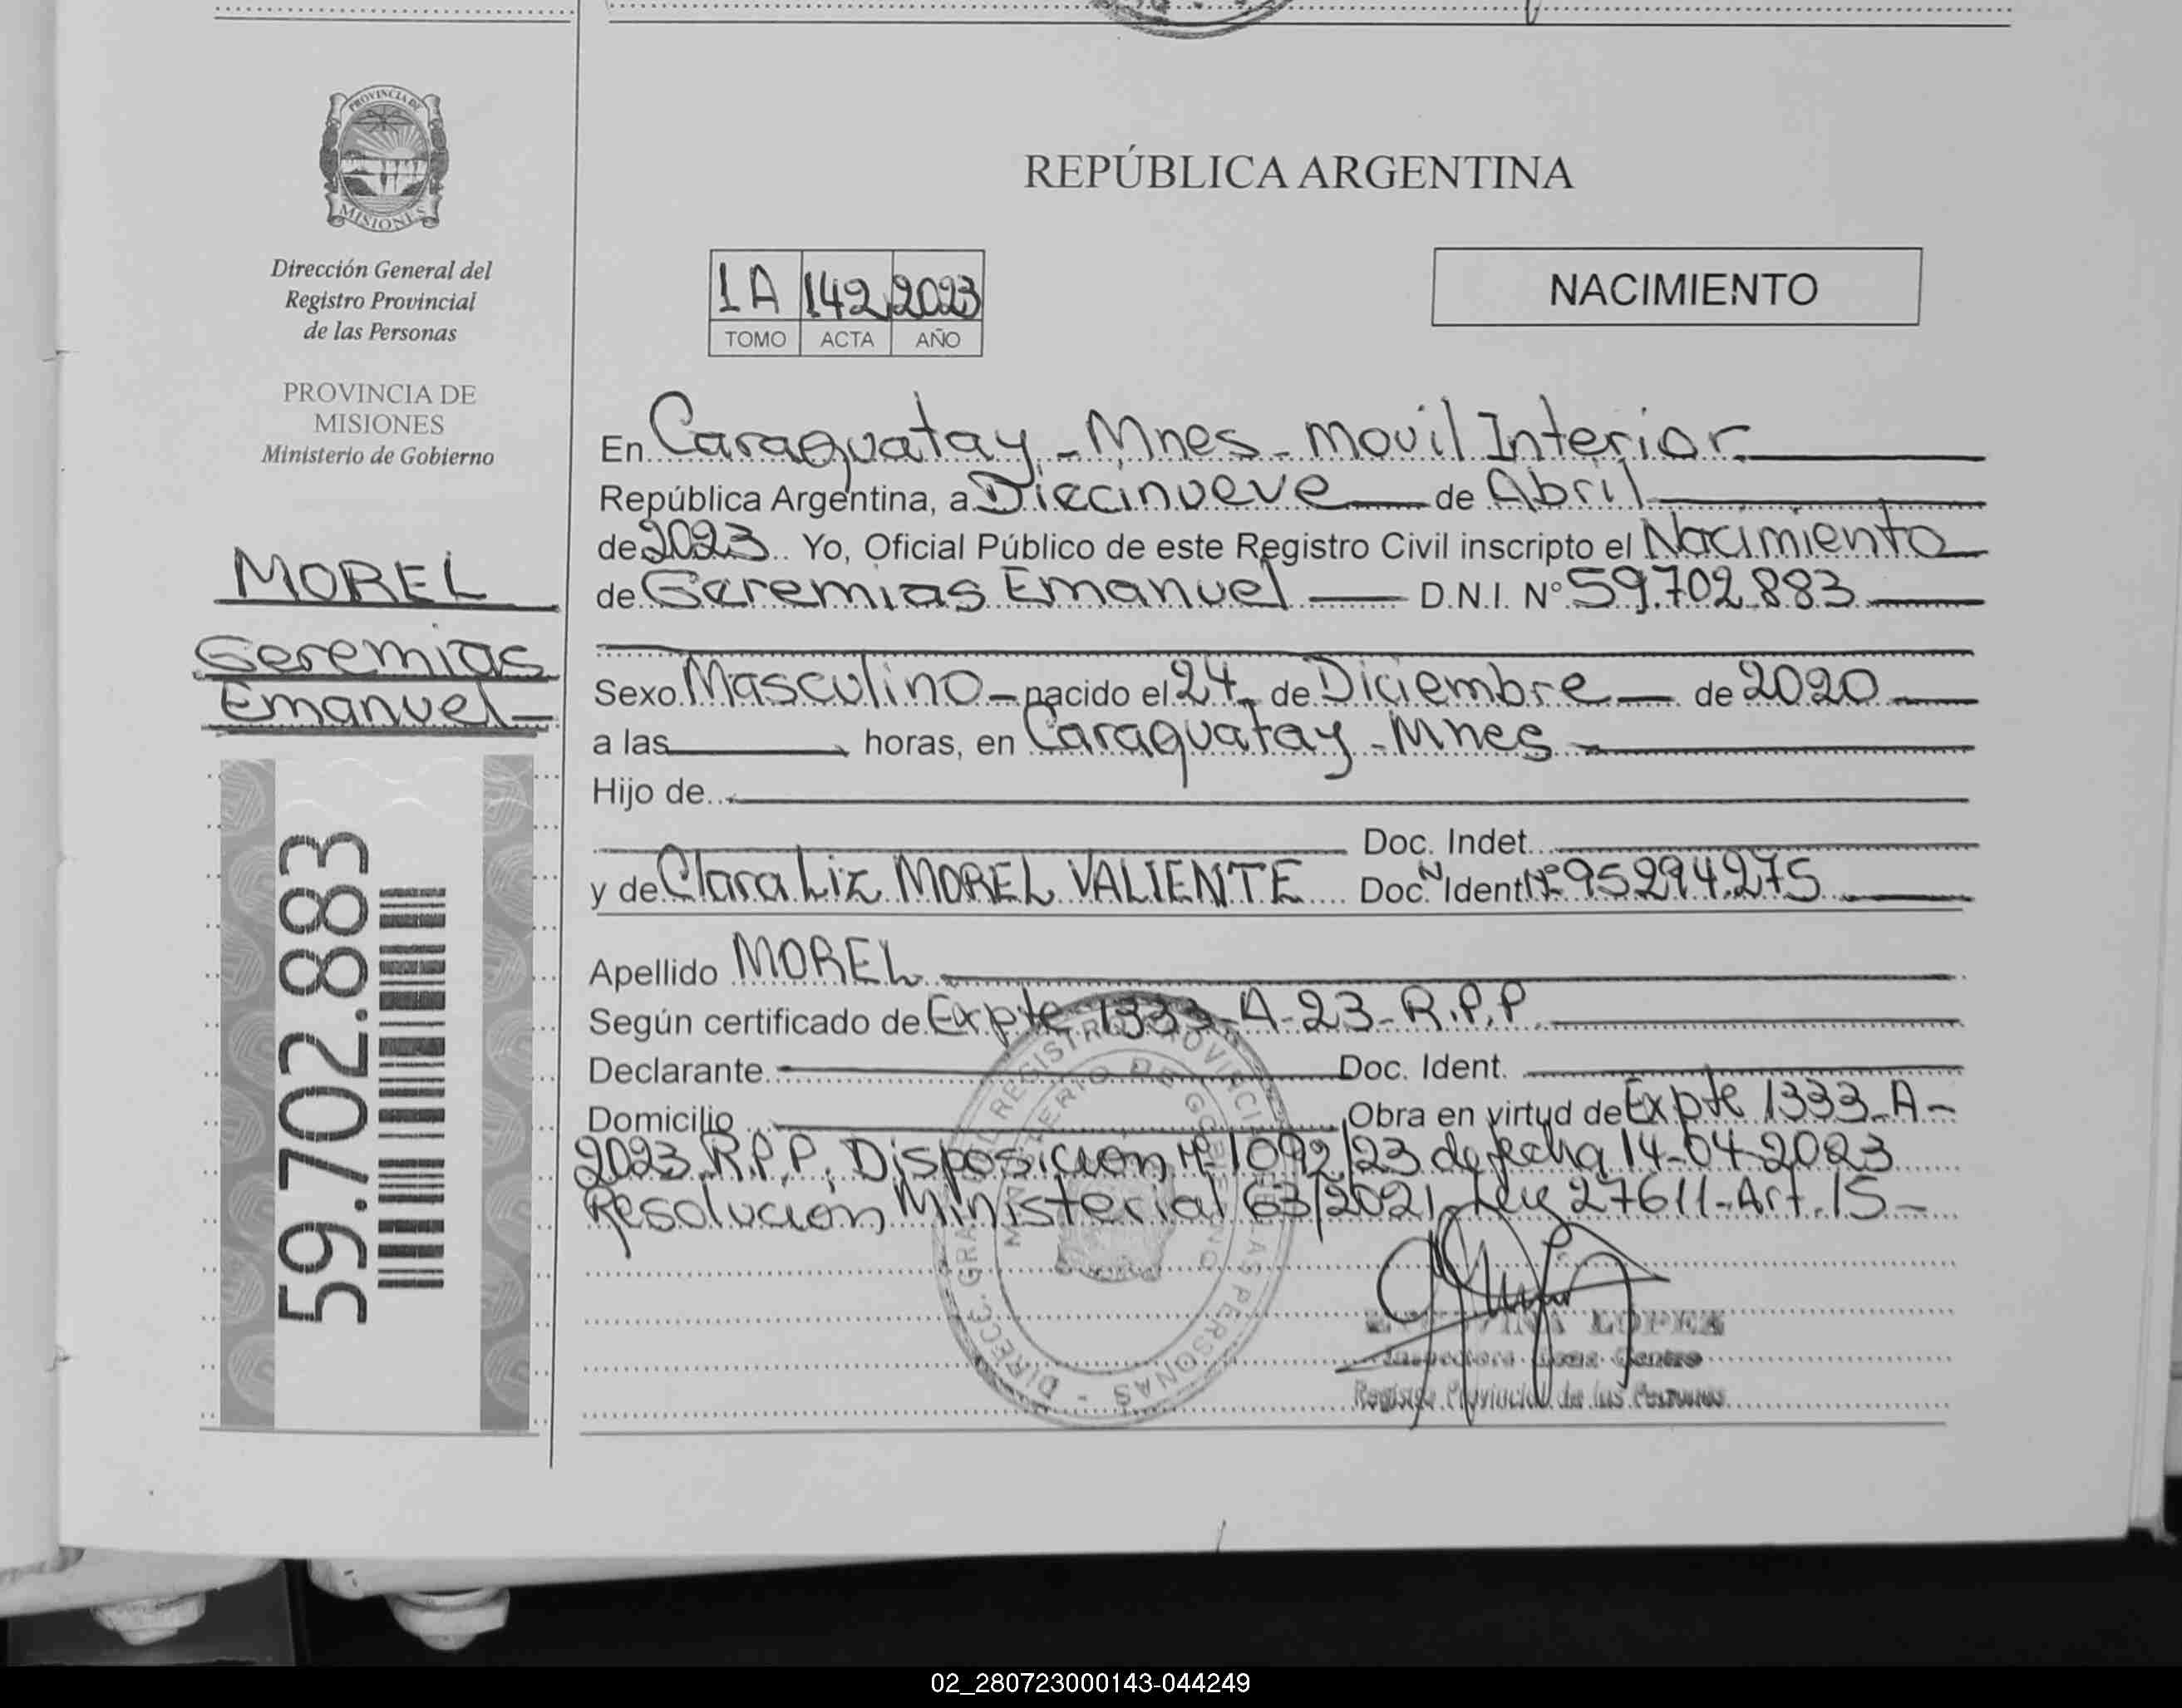 PROVINCIA DE
MISIONES
Dirección General del
Registro Provincial
de las Personas
PROVINCIA DE
MISIONES
Ministerio de Gobierno
MOREL
Geremias
Emanuel
59.702.883
REPÚBLICA ARGENTINA
1A 142 2023
TOMO ACTA AÑO
NACIMIENTO
En Caraguatay - Mnes - Movil Interior
República Argentina, a Diecinueve de Abril
de 2023 Yo, Oficial Público de este Registro Civil inscripto el Nacimiento
de Geremias Emanuel D.N.I. Nº 59.702.883
Sexo Masculino nacido el 24 de Diciembre de 2020
a las horas, en Caraguatay - Mnes
Hijo de
Doc. Indet.
y de Clara Liz MOREL VALIENTE Doc. Ident Nº 95294.275
Apellido MOREL
Según certificado de Expte 1333-A-23-R.P.P.
Declarante Doc. Ident.
Domicilio Obra en virtud de Expte 1333-A-
2023 R.P.P. Disposicion Nº 1092/23 de fecha 14-04-2023
Resolución Ministerial 63/2021 - Ley 27611-Art. 15-
DIRECC. GRAL. DEL REGISTRO PROVINCIAL DE LAS PERSONAS -
MINISTERIO DE GOBIERNO
LOPEZ
Inspectora Zona Centro
Registro Provincial de las Personas
02_280723000143-044249